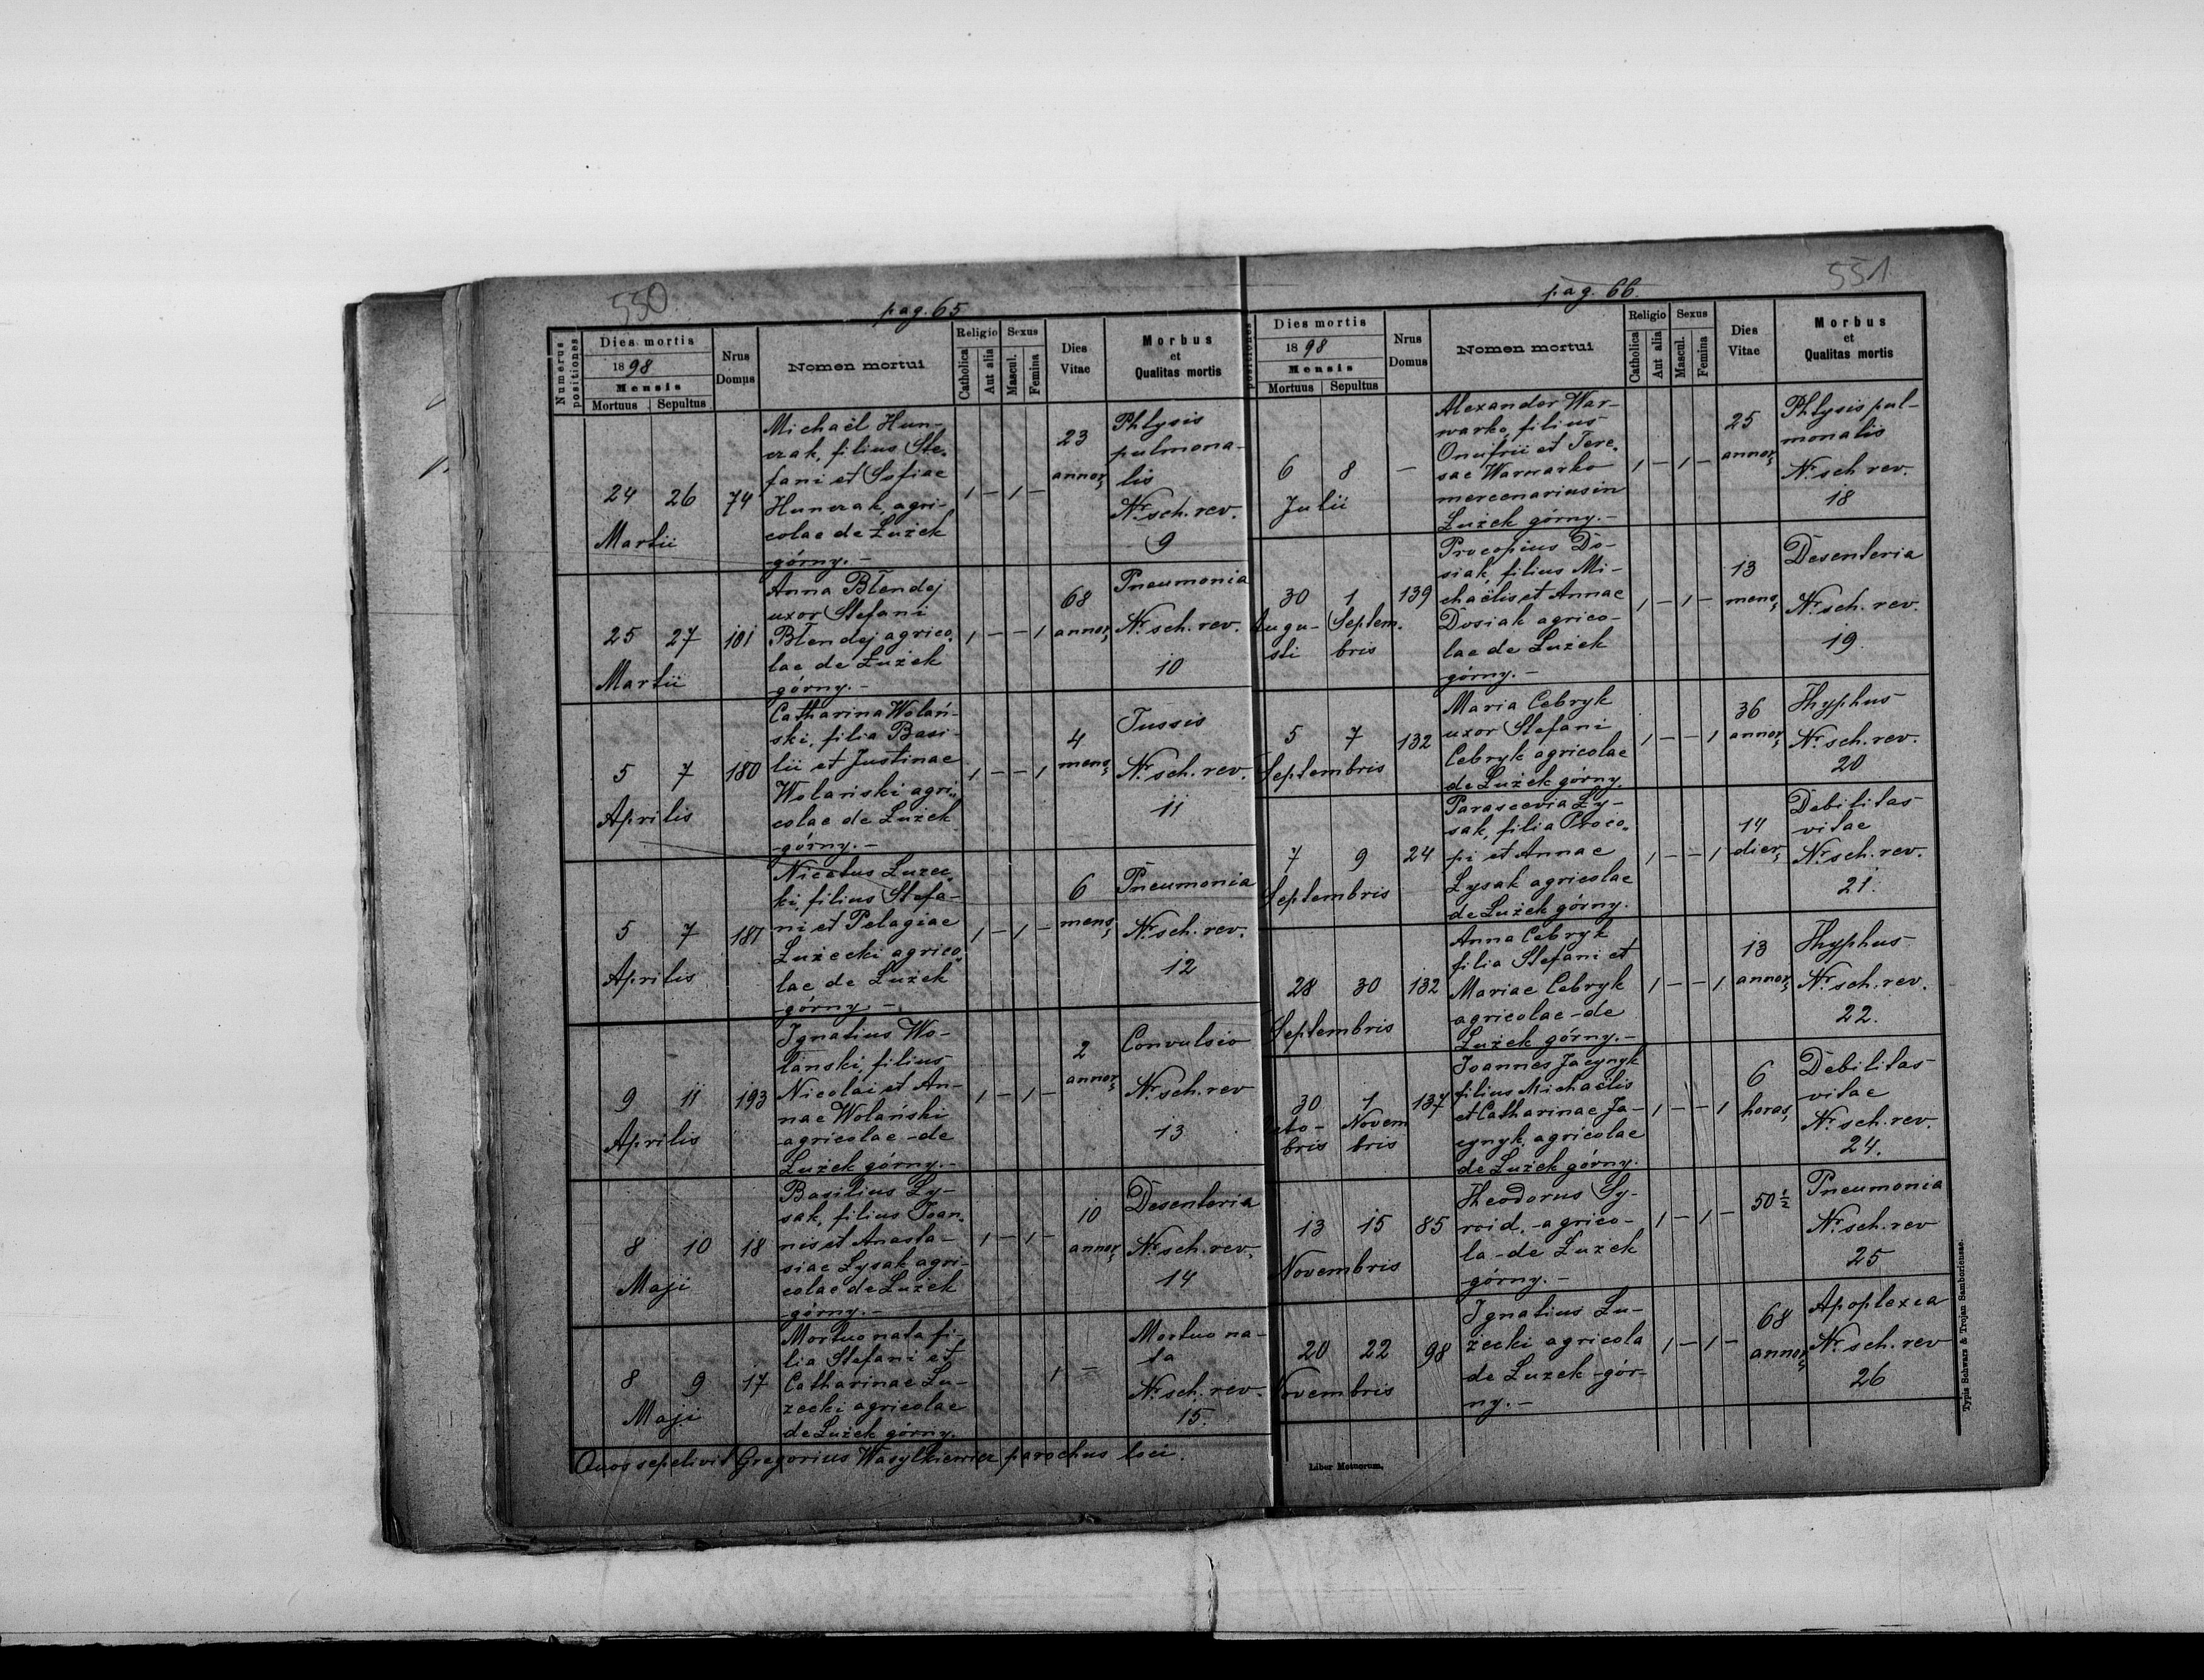 550
pag. 65
Numerus positiones
Dies mortis
1898
Mensis
Mortuus Sepultus
Nrus Domus
Nomen mortui
Religio
Catholica
Aut alia
Sexus
Mascul.
Femina
Dies Vitae
Morbus
et
Qualitas mortis
24 26 74
Martii
Michaël Hun-
czak, filius Ste-
fani et Sofiae
Hunczak, agri-
colae de Łużek
górny. -
1 - 1 -
23
annor
Phtysis
pulmona-
lis
Nr. sch. rev.
9
25 27 101
Martii
Anna Błendej
uxor Stefani
Błendej agrico-
lae de Łużek
górny. -
1 - - 1
68
annor
Pneumonia
Nr. sch. rev.
10
5 7 180
Aprilis
Catharina Wolań-
ski, filia Basi-
lii et Justinae
Wolański agri-
colae de Łużek
górny. -
1 - - 1
4
mens
Tussis
Nr. sch. rev.
11
5 7 181
Aprilis
Nicetus Łużec-
ki, filius Stefa-
ni et Pelagiae
Łużecki agrico-
lae de Łużek
górny. -
1 - 1 -
6
mens
Pneumonia
Nr. sch. rev.
12
9 11 193
Aprilis
Ignatius Wo-
lański, filius
Nicolai et An-
nae Wolański
agricolae - de
Łużek górny. -
1 - 1 -
2
annor
Convulsio
Nr. sch. rev
13
8 10 18
Maji
Basilius Ły-
sak, filius Joan-
nis et Anasta-
siae Łysak agri-
colae de Łużek
górny. -
1 - 1 -
10
annor
Desenteria
Nr. sch. rev.
14
8 9 17
Maji
Mortuo nata fi-
lia Stefani et
Catharinae Łu-
żecki agricolae
de Łużek górny.
1 =
Mortuo na-
ta
Nr. sch. rev.
15.
Quos sepelivit Gregorius Wasylkiewicz parochus loci.
551
pag. 66.
positiones
Dies mortis
1898
Mensis
Mortuus Sepultus
Nrus Domus
Nomen mortui
Religio
Catholica
Aut alia
Sexus
Mascul.
Femina
Dies Vitae
Morbus
et
Qualitas mortis
6 8 -
Julii
Alexander War-
warko, filius
Onufrii et Tere-
sae Warwarko
mercenarius in
Łużek górny. -
1 - 1 -
25
annor
Phtysis pul-
monalis
Nr. sch rev.
18
30 1 139
Augu- Septem.
sti bris
Procopius Do-
siak, filius Mi-
chaëlis et Annae
Dosiak agrico-
lae de Łużek
górny. -
1 - 1 -
13
mens
Desenteria
Nr. sch. rev.
19
5 7 132
Septembris
Maria Cebryk
uxor Stefani
Cebryk agricolae
de Łużek górny.
1 - - 1
36
annor
Thyphus
Nr. sch. rev.
20
7 9 24
Septembris
Parascevia Ły-
sak, filia Proco-
pi et Annae
Łysak agricolae
de Łużek górny.
1 - - 1
14
dier
Debilitas
vitae
Nr. sch. rev.
21.
28 30 132
Septembris
Anna Cebryk
filia Stefani et
Mariae Cebryk
agricolae - de
Łużek górny. -
1 - - 1
13
annor
Thyphus
Nr. sch. rev.
22.
30 1 137
cto- Novem
bris bris
Joannes Jacynyk
filius Michaëlis
et Catharinae Ja-
cynyk agricolae
de Łużek górny.
1 - - 1
6
horas
Debilitas
vitae
Nr. sch. rev.
24.
13 15 85
Novembris
Theodorus Sy-
roid, - agrico-
la - de Łużek
górny. -
1 - 1 -
50 1/2
Pneumonia
Nr. sch. rev
25
20 22 98
Novembris
Ignatius Łu-
żecki agricola
de Łużek - gór-
ny. -
1 - 1 -
68
annor
Apoplexea
Nr. sch. rev
26
Liber Motuorum.
Typis Schwarz & Trojan Samboriensae.